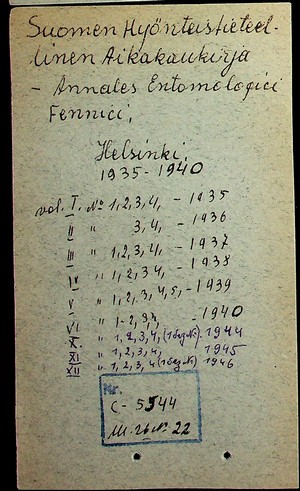 Suomen Hyönteistieteel-
linen Aikakauskirja
- Annales Entomologici
Fennici,
Helsinki,
1935-1940
vol. I. № 1,2,3,4, - 1935
II " 3,4, - 1936
III " 1,2,3,4, - 1937
IV " 1,2,3,4, - 1938
V " 1,2,3,4,5, - 1939
VI " 1-2,3,4 - 1940
X. " 1,2,3,4, (1 без №). 1944
XI " 1,2,3,4, 1945
XII " 1,2,3,4 (1 без №) 1946
Nr.
C - 5544
№ 22